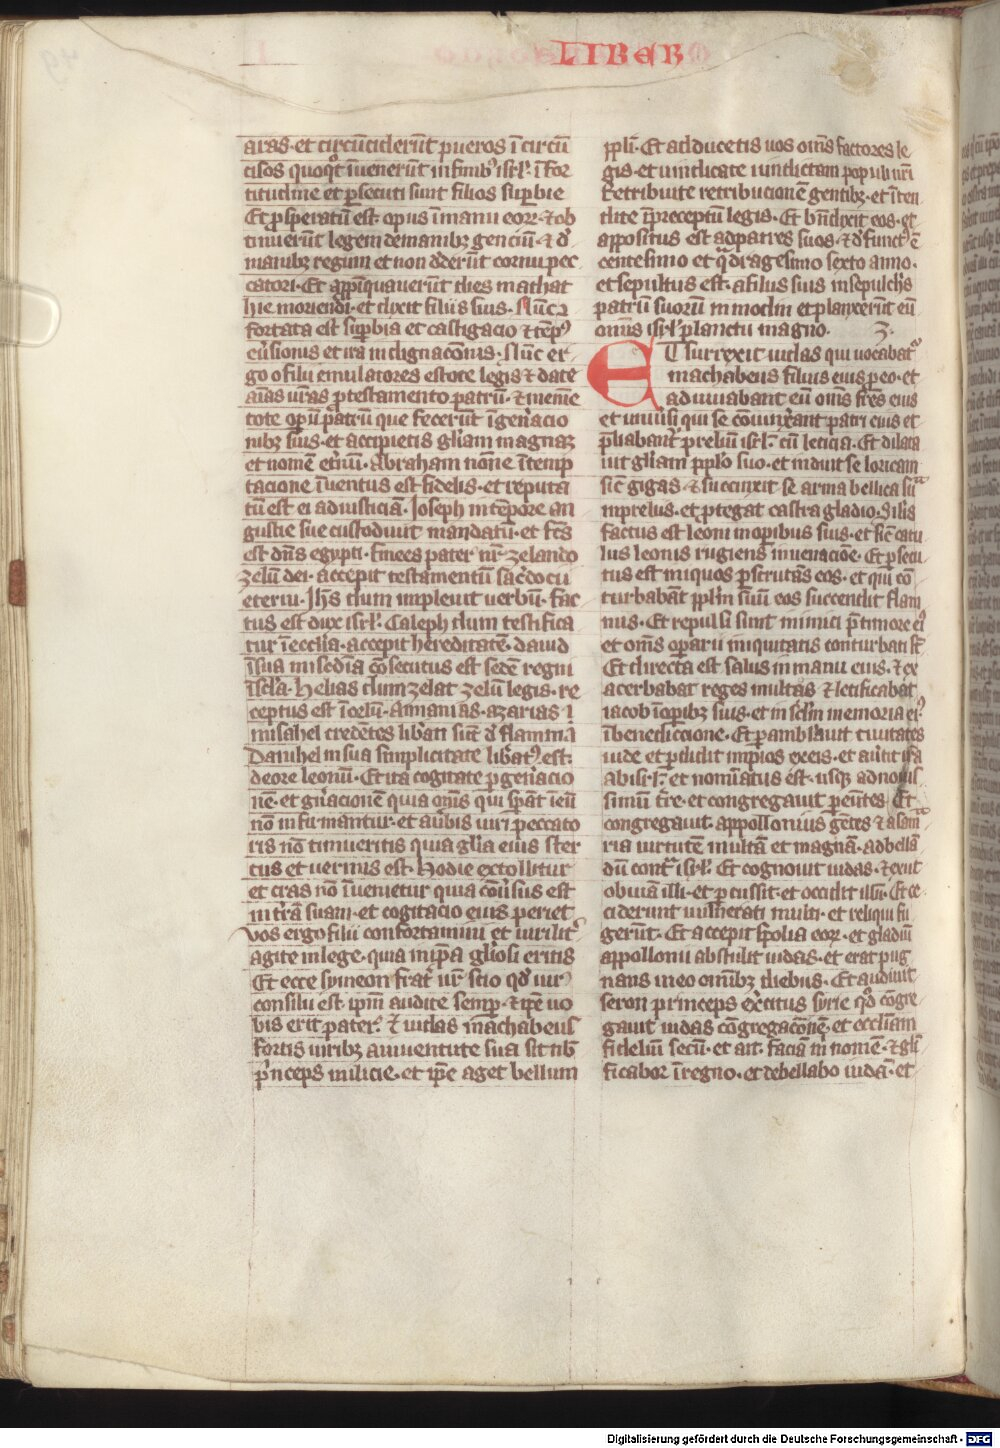 LIBER
aras· et circūciderūt pueros ī circū
cisos quoqꝫ īuenerūt in finibꝰ isrl'· ī for
titudine et ꝑsecuti sunt filios suꝑbie
Et ꝓsperatū est opus ī manu eoꝝ ⁊ ob
tinuerūt legem de manibꝫ genciū· ⁊ d'
manibꝫ regum et non dederūt cornu pec
catori· Et apꝓpīquauerūt dies mathat
hie moriendi· et dixit filiis suis· Nūc ꝯ
fortata est suꝑbia et castigacio ⁊ tēpꝰ
eūsionis et ira indignacōnis· Nūc er
go o filii emulatores estote legis ⁊ date
aīas uras ꝓ testamento patrū· ⁊ memē
tote oꝑū patrū que fecerūt ī gen'acio
nibꝫ suis· et accipietis gl'iam magnaꝫ
et nomē et'nū· Abraham nonne ī temp
tacione īuentus est fidelis· et reputa
tū est ei ad iusticiā· Ioseph in tēpore an
gustie sue custodiuit mandatū· et fc̄s
est dn̄s egypti· finees pater nr̄ zelando
zelū dei· accepit testamentū sac'docii
eterni· Ih̄s dum impleuit uerbū· fac
tus est dux isrl'· Caleph dum testifica
tur ī eccl'ia· accepit hereditatē· dauid
ī sua mis'dia ꝯsecutus est sedē regni
ī scl'a· Helias dum zelat zelū legis· re
ceptus est ī celū· Annanias· azarias ⁊
misahel credētes lib'ati sūt d' flamma
Danihel in sua simplicitate lib'atꝰ est·
de ore leonū· Et ita cogitate ꝑ gen'acio
nē· et gn'acionē quia om̄s qui sꝑant ī eū
nō infirmantur· et a u'bis uiri peccato
ris nō timueritis quia gl'ia eius ster
tus et uermis est· Hodie extollitur
et cras nō īuenietur quia cōu'sus est
in t'rā suam· et cogitacio eius periet
vos ergo filii confortamini et uirilit'
agite in lege· quia in ip̄a gl'iosi eritis
Et ecce symeon frat' ur̄ scio qd' uir
consilii est· ipm̄ audite semꝑ· ⁊ ip̄e uo
bis erit pater· Et iudas machabeus
fortis uiribꝫ a iuuentute sua sit uob
p'nceps milicie· et ip̄e aget bellum
ppl'i· Et adducetis uos om̄s factores le
gis· et uindicate uindictam populi ur̄i
Retribuite retribucionē gentibꝫ· et īten
dite p̄ceptū legis· Et bn̄dixit eos· et
appositus est ad patres suos· ⁊ d'functꝰ ē
centesimo et q'dragesimo sexto anno·
et sepultus est· a filiis suis in sepulchs
patrū suorū in modin et planxerūt eū
om̄is isrl' planctu magno· 3·
ET surrexit iudas qui uocabat'
machabeus filius eius ꝓ eo· et
adiuuabant eū om̄s fr̄es eius
et uniu'si qui se cōiunx'ant patri eius et
p̄liabant' prelium isrl'· cū leticia· Et dilata
uit gl'iam ppl'o suo· et induit se loricam
sic̄ gigas· ⁊ succinxit se arma bellica sua
in prelus· et ꝓtegat castra gladio· Sil'is
factus est leoni in operibus suis· et sic̄ catu
lus leonis rugiens in uenacione· Et ꝑsecu
tus est iniquos ꝑscrutans eos· et qui cō
turbabāt ppl'm suū eos succendit flam
mis· Et repulsi sunt inimici p̄ timore eiꝰ
et om̄s oꝑarii iniquitatis conturbati st̄
Et directa est salus in manu eius· ⁊ ex
acerbabat reges multas ⁊ letificabat
iacob ī oꝑibꝫ suis· et in scl'm memoria eiꝰ
ī benediccione· Et ꝑambulauit ciuitates
iude et ꝑdidit impios ex eis· et au'tit irā
ab isrl'· et nominatus est· usqꝫ ad nouis
simū t're· et congregauit ꝑeūtes· Et
congregauit· appollonius gentes ⁊ a sama
ria uirtutē multā et magnā· ad bellā
dū cont' isrl'· Et cognouit iudas· ⁊ exiit
obuiā illi· et ꝑcussit· et occidit illū· Et ce
ciderunt uulnerati multi· et reliqui fu
gerūt· Et accepit spolia eoꝝ· et gladiū
appollonii abstulit iudas· et erat pug
nans in eo om̄ibꝫ diebus· Et audiuit
seron princeps ex'citus syrie qd' cōgre
gauit iudas cōgregacōnē· et eccl'iam
fideliū secū· et ait· faciā m nomē· ⁊ gl'i
ficabor ī regno· et debellabo iudā· et
Digitalisierung gefördert durch die Deutsche Forschungsgemeinschaft - DFG